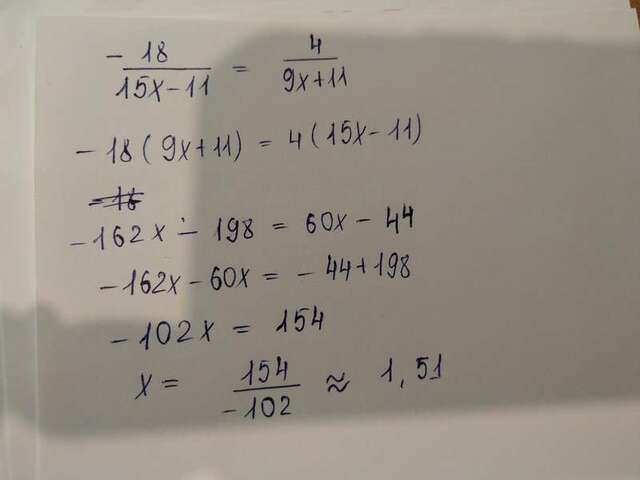 -18/(15x-11) = 4/(9x+11)
-18(9x+11) = 4(15x-11)
-162x - 198 = 60x - 44
-162x - 60x = -44+198
-102x = 154
x = 154/-102 ≈ 1,51